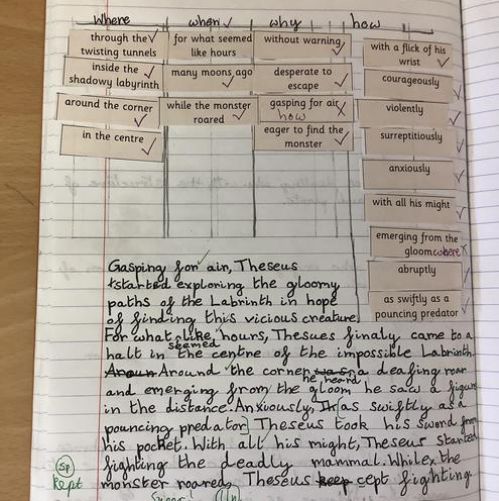 where when why how
through the twisting tunnels
for what seemed like hours
without warning
with a flick of his wrist
inside the shadowy labyrinth
many moons ago
desperate to escape
courageously
around the corner
while the monster roared
gasping for air
how
violently
in the centre
eager to find the monster
surreptitiously
anxiously
with all his might
emerging from the gloom where
abruptly
as swiftly as a pouncing predator
Gasping for air, Theseus
started exploring the gloomy
paths of the Labrinth in hope
of finding this vicious creature.
For what seemed like hours, Thesues finaly came to a
halt in the centre of the impossible Labrinth.
Around the corner he heard a deafing roar
and emerging from the gloom he saw a figure
in the distance. Anxiously, as swiftly as a
pouncing predator Theseus took his sword from
his pocket. With all his might, Theseus started
fighting the deadly mammal. While the
Sp kept monster roared, Theseus keep cept fighting